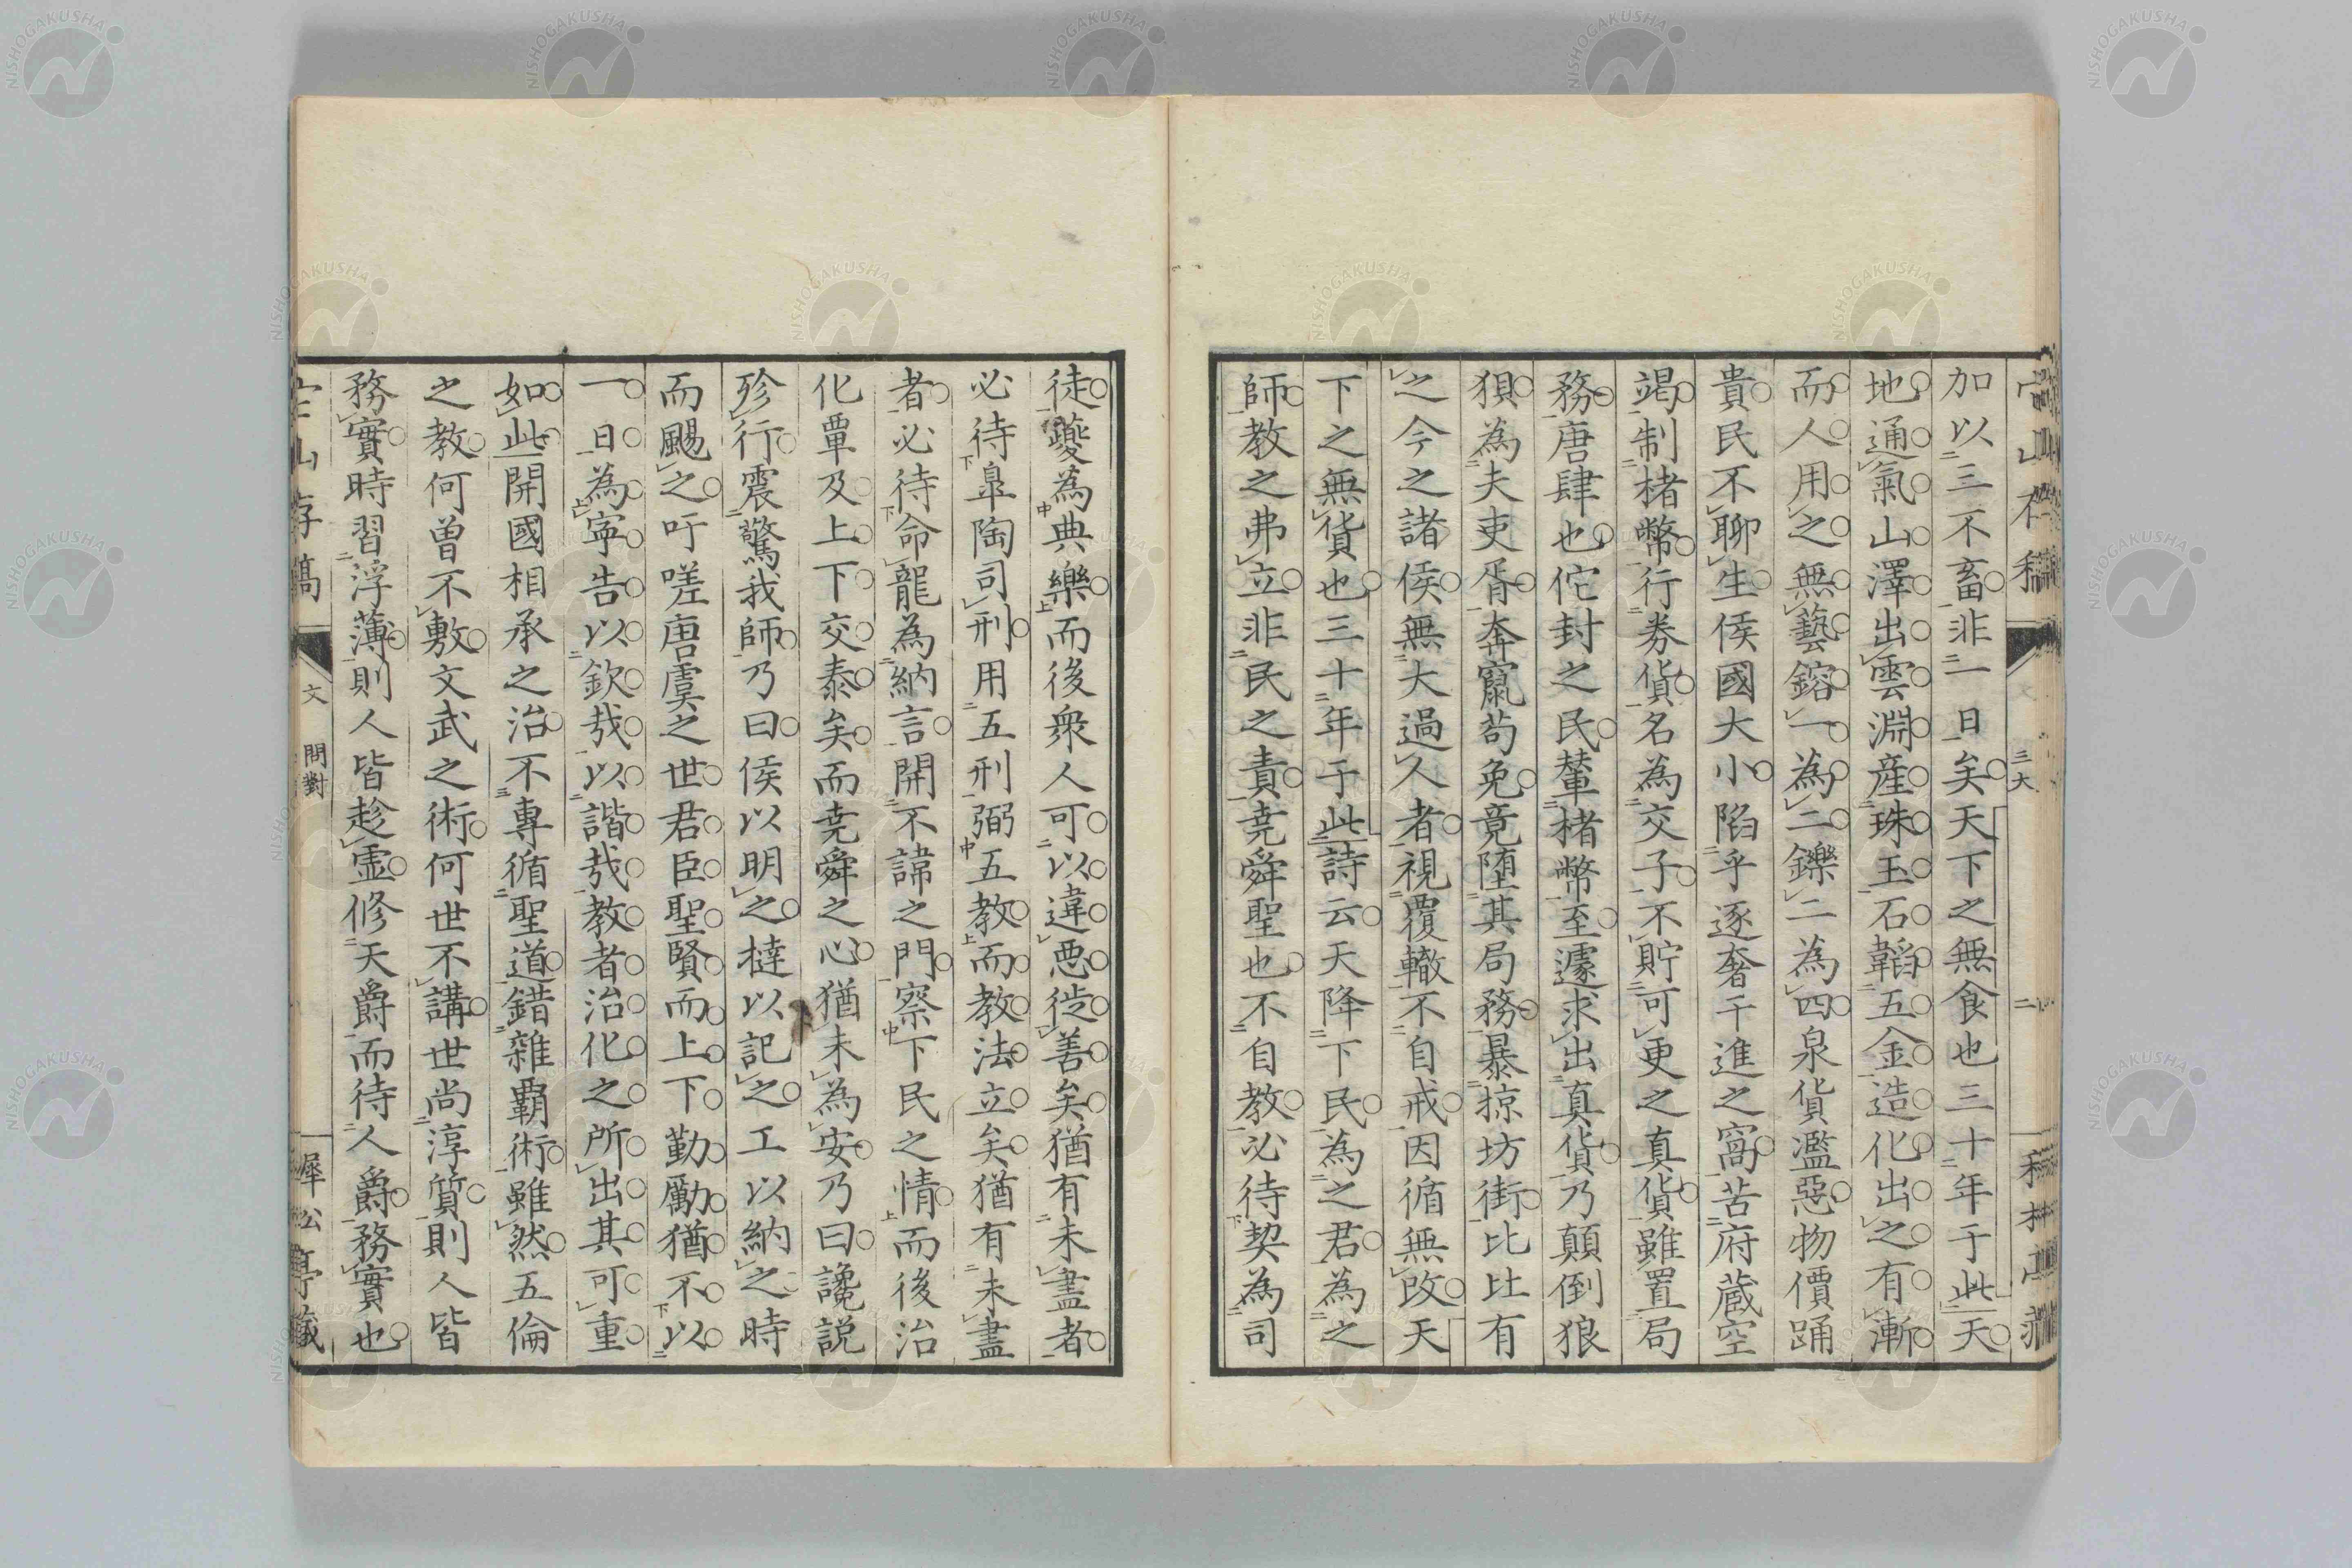 加以三不畜非一日矣天下之無食也三十年于此天
地通氣山澤出雲淵産珠玉石韜五金造化出之有漸
而人用之無藝鎔一為二鑠二為四泉貨濫惡物價踊
貴民不聊生侯國大小陷乎逐奢干進之窩苦府蔵空
竭制楮幣行券貨名為交子不貯可更之真貨雖置局
務唐肆也佗封之民輦楮幣至遽求出真貨乃顛倒狼
狽為夫吏胥奔竄苟免竟堕其局務暴掠坊街比比有
之今之諸侯無大過人者視覆轍不自戒因循無改天
下之無貨也三十年于此詩云天降下民為之君為之
師教之弗立非民之責堯舜聖也不自教必待契為司
徒夔為典樂而後衆人可以違悪徙善矣猶有未盡者
必待皐陶司刑用五刑弼五教而教法立矣猶有未盡
者必待命龍為納言開不諱之門察下民之情而後治
化覃及上下交泰矣而堯舜之心猶未為安乃曰讒説
殄行震驚我師乃曰侯以明之撻以記之工以納之時
而颺之吁嗟唐虞之世君臣聖賢而上下勤勵猶不以
一日為寧告以欽㢤以諧㢤教者治化之所出其可重
如此開國相承之治不專循聖道錯雜覇術雖然五倫
之教何曽不敷文武之術何世不講世尚淳質則人皆
務實時習浮薄則人皆趁虚修天爵而待人爵務實也
文 問對
犀松亭藏